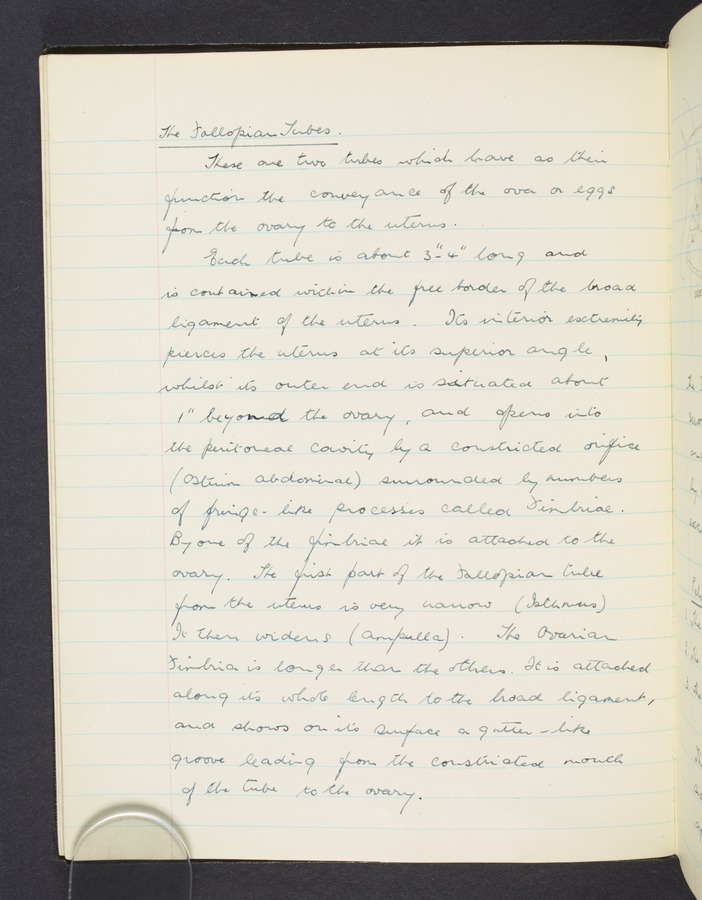 The Fallopian Tubes.
These are two tubes which have as their
function the conveyance of the ova or eggs
from the ovary to the uterus.
Each tube is about 3"-4" long and
is contained within the free border of the broad
ligament of the uterus. Its interior extremity
pierces the uterus at its superior angle,
whilst its outer end is situated about
1" beyond the ovary, and opens into
the peritoneal cavity by a constricted orifice
(Ostium abdominal) surrounded by numbers
of fringe-like processes called Fimbriae.
By one of the fimbriae it is attached to the
ovary. The first part of the Fallopian tube
from the uterus is very narrow (Isthmus)
It then widens (ampulla). The Ovarian
Fimbria is longer than the others. It is attached
along its whole length to the broad ligament,
and shows on its surface a gutter-like
groove leading from the constricted mouth
of the tube to the ovary.